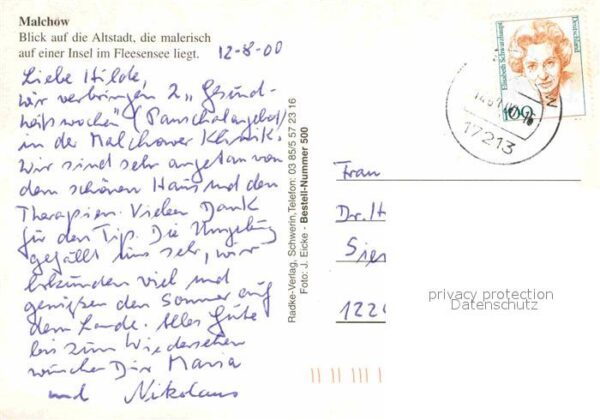 Malchow
Blick auf die Altstadt, die malerisch
auf einer Insel im Fleesensee liegt.
12-8-00
Liebe Hilde,
wir verbringen 2 „Gesund-
heitswochen" (Pauschalangebot)
in der Malchower Klinik.
Wir sind sehr angetan von
dem schönen Haus und den
Therapien. Vielen Dank
für den Tip. Die Umgebung
gefällt uns sehr, wir
erkunden viel und
genießen den Sommer auf
dem Lande. Alles Gute
bis zum Wiedersehen
wünschen Dir Maria
und Nikolaus
Radke-Verlag, Schwerin, Telefon: 03 85/5 57 23 16
Foto: J. Eicke - Bestell-Nummer 500
Elisabeth Schwarzhaupt
Deutschland
100
17213
Frau
Dr. H
Sie
122
privacy protection
Datenschutz